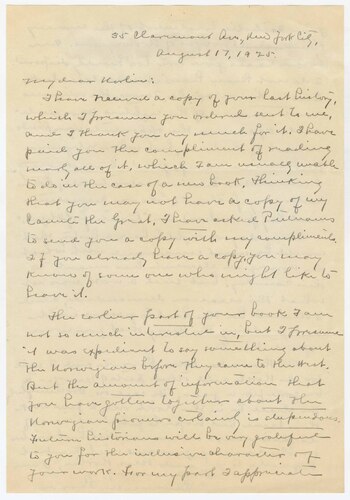 35 Claremont Ave, New York City,
August 17, 1925.
My dear Norlie:
I have received a copy of your last history,
which I presume you ordered sent to me,
and I thank you very much for it. I have
paid you the compliment of reading
nearly all of it, which I am usually unable
to do in the case of a new book. Thinking
that you may not have a copy of my
Canute the Great, I have asked Putnams
to send you a copy with my compliments.
If you already have a copy, you may
know of some one who might like to
have it.
The earlier part of your book I am
not so much interested in, but I presume
it was expedient to say something about
the Norwegians before they came to the West.
But the amount of information that
you have gotten together about the
Norwegian pioneers certainly is stupendous.
Future historians will be very grateful
to you for the inclusive character of
your work. For my part I appreciate